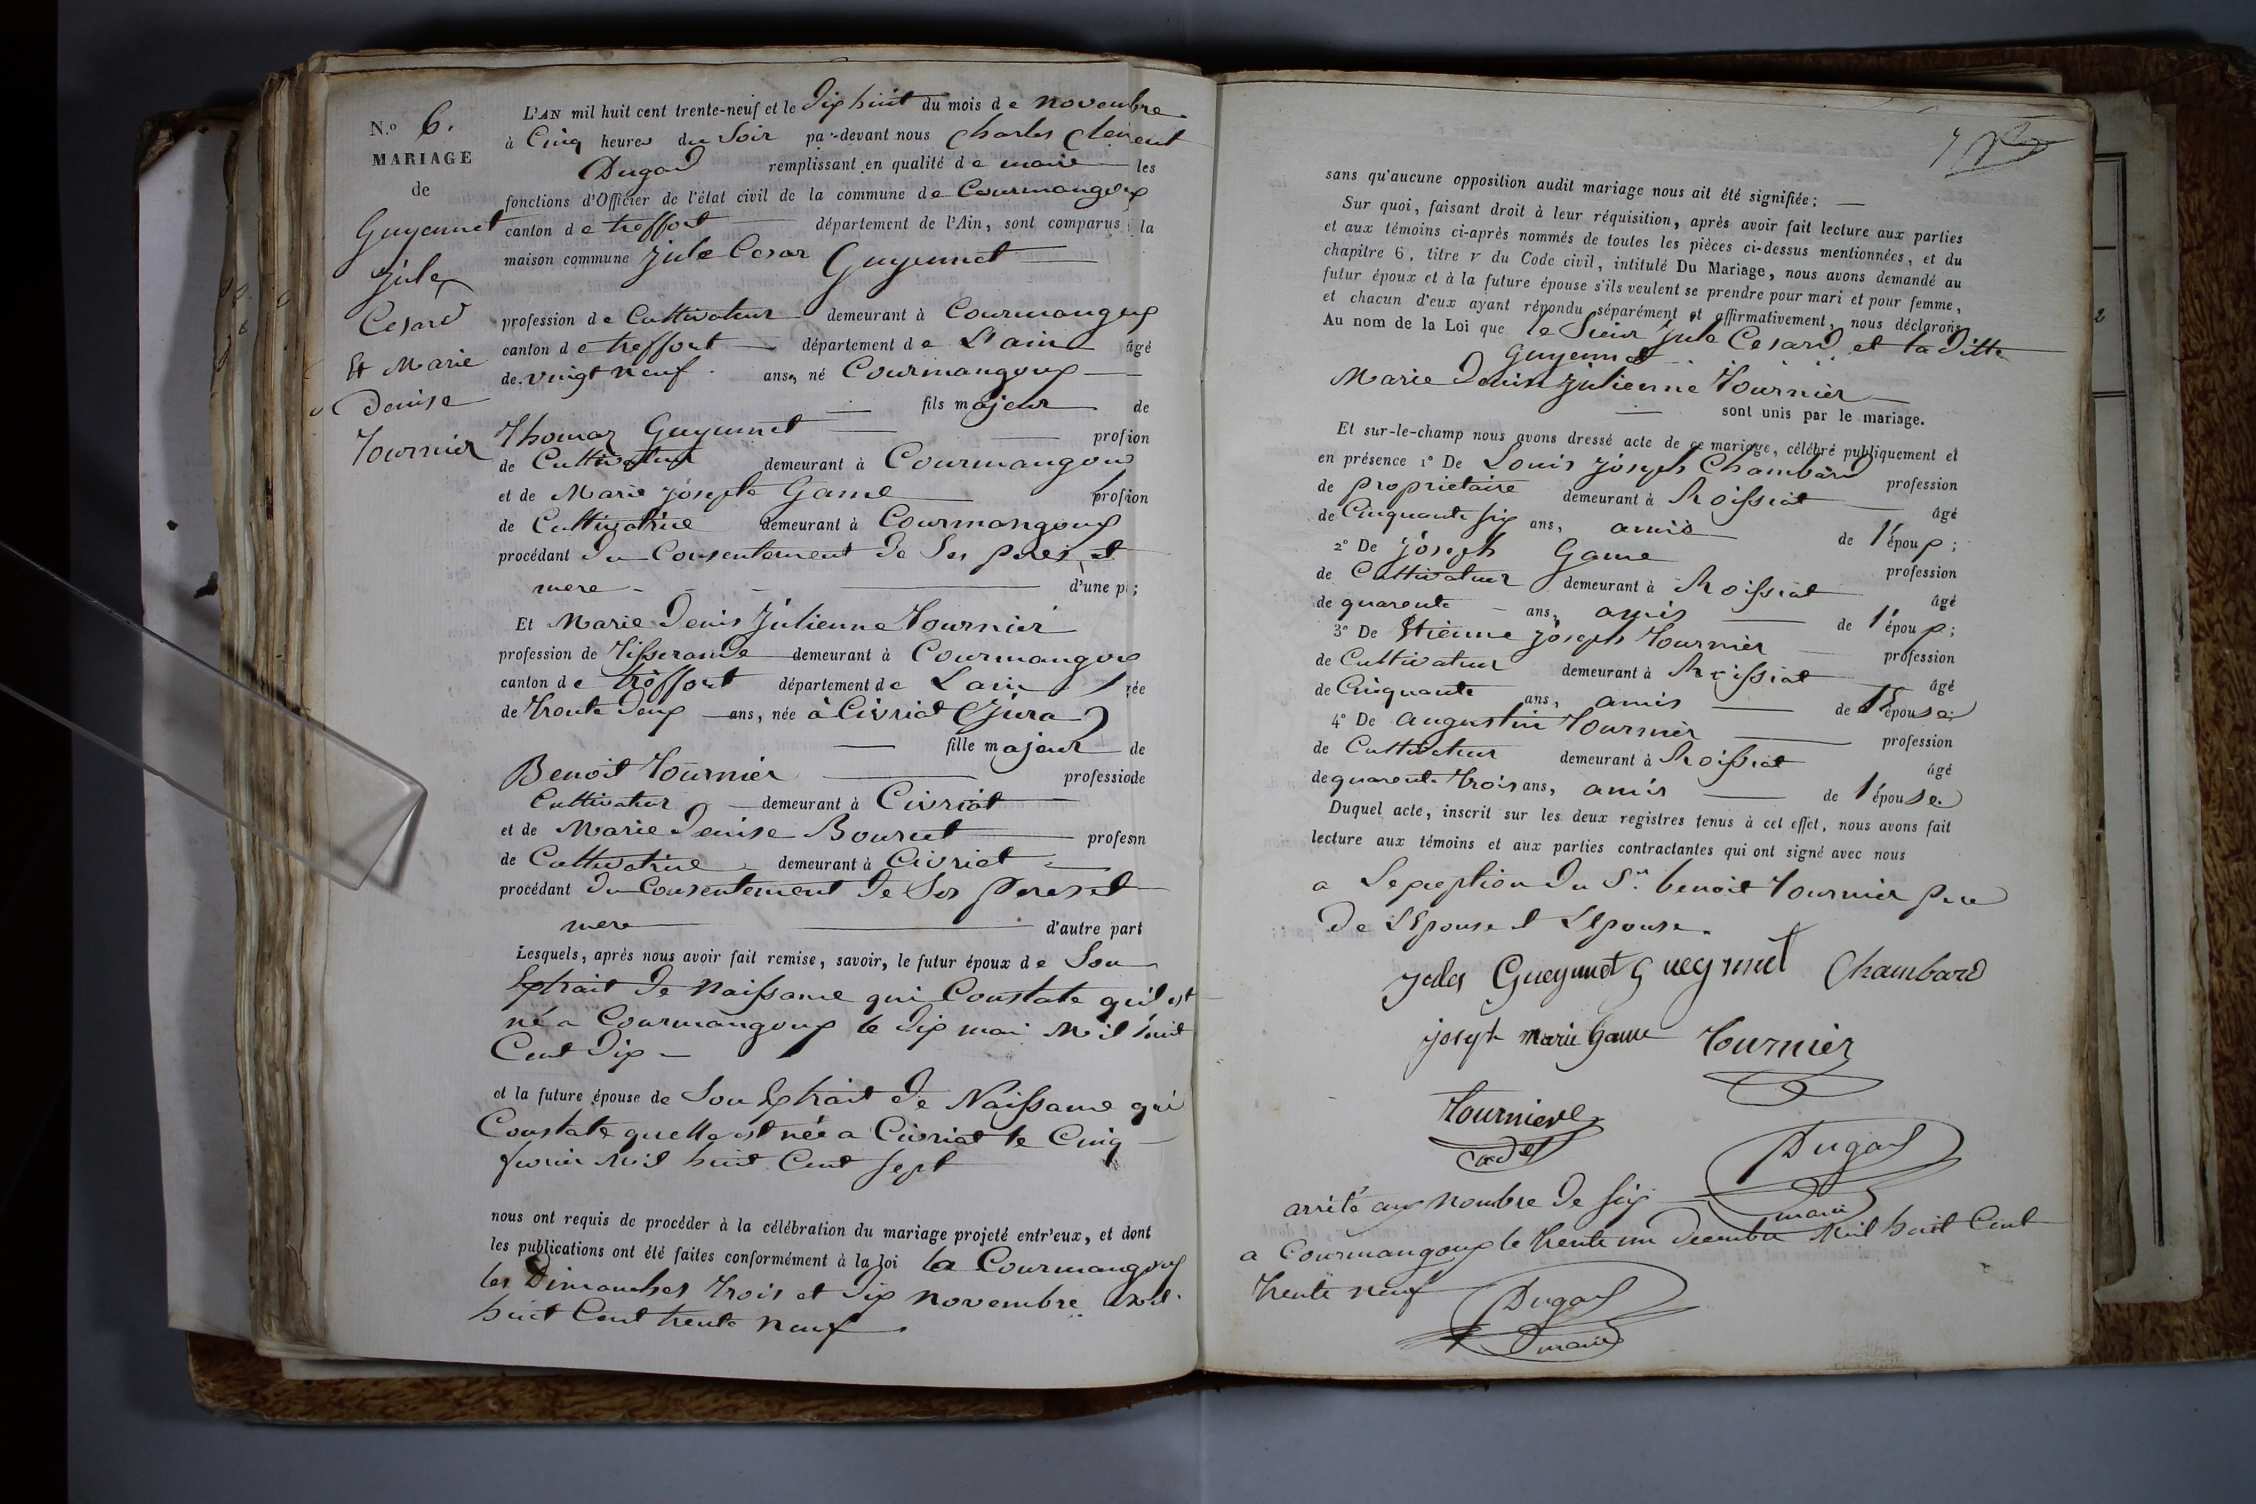 N.o 6.
MARIAGE
de
Guyennet
jule
Cesard
Et Marie
Denise
Tournier
L'AN mil huit cent trente-neuf et le Dix huit du mois de novembre
à Cinq heures du Soir par-devant nous Charles Clement
Dugad remplissant en qualité de maire les
fonctions d'Officier de l'état civil de la commune de Courmangoux
canton de treffort département de l'Ain, sont comparus à la
maison commune jule Cesar Guyennet
profession de Cultivateur demeurant à Courmangoux
canton de treffort département de L'ain âgé
de vingt neuf ans, né Courmangoux
fils majeur de
Thomas Guyennet profion
de Cultivateur demeurant à Courmangoux
et de Marie josephe Game profion
de Cultivatrice demeurant à Courmangoux
procédant du Consentement de Ses peres et
mere d'une p ;
Et Marie Denis Julienne Tournier
profession de Tisserande demeurant à Courmangoux
canton de treffort département de Lain gée
de Trente Deux ans, née à Civriat (Jura)
fille majeur de
Benoit Tournier professiode
Cultivateur demeurant à Civriat
et de Marie Denise Bourcet profesin
de Cultivatrice demeurant à Civriat
procédant du Consentement de Ses peres et
mere d'autre part
Lesquels, après nous avoir fait remise, savoir, le futur époux de Son
Extrait de Naissance qui Constate qu'il est
né a Courmangoux le dix mai Mil huit
Cent Dix
et la future épouse de Son Extrait de Naissance qui
Constate quelle est née a Civriat le Cinq
fevrier Mil huit Cent Sept
nous ont requis de procéder à la célébration du mariage projeté entr'eux, et dont
les publications ont été faites conformément à la loi a Courmangoux
les Dimanches Trois et Dix novembre Mil
huit Cent trente neuf
sans qu'aucune opposition audit mariage nous ait été signifiée ;
Sur quoi, faisant droit à leur réquisition, après avoir fait lecture aux parties
et aux témoins ci-après nommés de toutes les pièces ci-dessus mentionnées, et du
chapitre 6, titre v du Code civil, intitulé Du Mariage, nous avons demandé au
futur époux et à la future épouse s'ils veulent se prendre pour mari et pour femme,
et chacun d'eux ayant répondu séparément et affirmativement, nous déclarons
Au nom de la Loi que le Sieur jule Cesard et la ditte
Guyennet
Marie Denise Julienne Tournier
sont unis par le mariage.
Et sur-le-champ nous avons dressé acte de ce mariage, célébré publiquement et
en présence 1° De Louis joseph Chambard profession
de proprietaire demeurant à Roissiat âgé
de Cinquante six ans, amis de l'époux ;
2° De joseph Game profession
de Cultivateur demeurant à Roissiat âgé
de quarente ans, amis de l'époux ;
3° De Etienne joseph Tournier profession
de Cultivateur demeurant à Roissiat âgé
de Cinquante ans, amis de l'épouse ;
4° De augustin Tournier profession
de Cultivateur demeurant à Roissiat âgé
de quarente trois ans, amis de l'épouse.
Duquel acte, inscrit sur les deux registres tenus à cet effet, nous avons fait
lecture aux témoins et aux parties contractantes qui ont signé avec nous
a Lexception du Sr. benoit Tournier pere
de L'Epouse et L'Epouse.
jules Gueynnet Gueynnet Chambard
joseph marie Game Tournier
Tournier
Cadet
Dugad
maire
arrêté au Nombre de Six
a Courmangoux le trente un Decembre Mil huit Cent
trente neuf
Dugad
maire